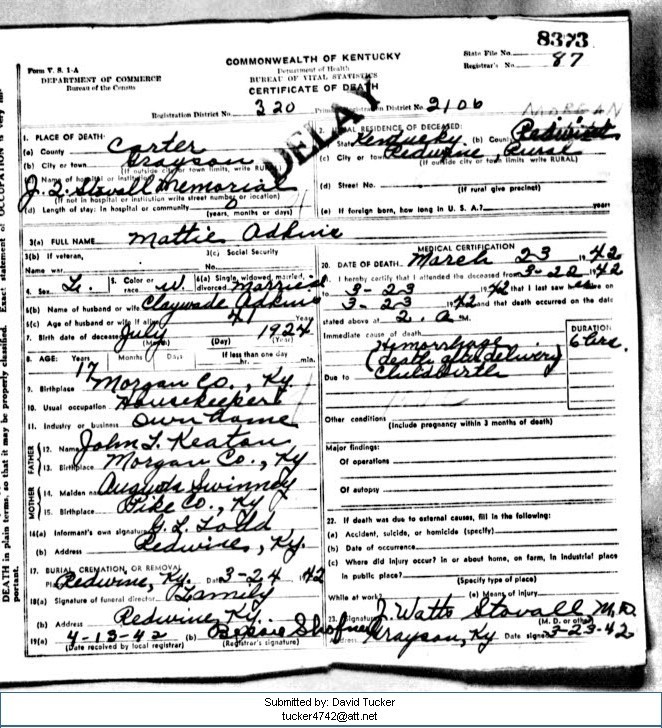 8373
COMMONWEALTH OF KENTUCKY
State File No.
Form V. S. 1-A
Department of Health
Registrar's No. 87
DEPARTMENT OF COMMERCE
BUREAU OF VITAL STATISTICS
Bureau of the Census
CERTIFICATE OF DEATH
Registration District No. 320
Registration District No. 2106
DELAY
MORGAN
1. PLACE OF DEATH:
(a) County Carter
(b) City or town Grayson
(If outside city or town limits, write RURAL)
Name of hospital or institution
J. Q. Stovall Memorial
(If not in hospital or institution write street number or location)
(d) Length of stay: In hospital or community
(years, months or days)
RESIDENCE OF DECEASED:
State Kentucky (b) County
(c) City or town Redwine Rural
(If outside city or town limits write RURAL)
(d) Street No.
(If rural give precinct)
(e) If foreign born, how long in U. S. A.? years
3(a) FULL NAME Mattie Adkins
3(b) If veteran, Name war
3(c) Social Security No.
4. Sex 5. Color or race W 6(a) Single, widowed, married, divorced Married
6(b) Name of husband or wife Claywade Adkins
6(c) Age of husband or wife if alive 41 Years
7. Birth date of deceased July 1924
(Month) (Day) (Year)
8. AGE: Years 17 Months Days If less than one day hr. min.
9. Birthplace Morgan Co., Ky
10. Usual occupation Housekeeper
11. Industry or business Own home
FATHER
12. Name John T. Keaton
13. Birthplace Morgan Co., Ky
MOTHER
14. Maiden name Augusta Swinney
15. Birthplace Pike Co., Ky
16(a) Informant's own signature G. L. Todd
(b) Address Redwines, Ky.
17. BURIAL, CREMATION, OR REMOVAL
Redwine, Ky. Date 3-24 1942
18(a) Signature of funeral director Family
(b) Address Redwine, Ky.
19(a) 4-13-42 (b) Bessie Shofner
(Date received by local registrar) (Registrar's signature)
MEDICAL CERTIFICATION
20. DATE OF DEATH March 23 1942
I hereby certify that I attended the deceased from 3-22 1942
to 3-23 1942 that I last saw alive on
3-23 1942 and that death occurred on the date
stated above at 2 a M.
Immediate cause of death
DURATION
Hemorrhage
(death after delivery)
Due to Childbirth
Other conditions
(Include pregnancy within 3 months of death)
Major findings:
Of operations
Of autopsy
22. If death was due to external causes, fill in the following:
(a) Accident, suicide, or homicide (specify)
(b) Date of occurrence
(c) Where did injury occur? In or about home, on farm, in industrial place
in public place?
(Specify type of place)
While at work? (e) Means of injury
23. Signature J. Watts Stovall M.D.
(M. D. or other)
Grayson, Ky Date signed 3-23-42
DEATH in plain terms, so that it may be properly classified. Exact statement of OCCUPATION is very im-
portant.
Submitted by: David Tucker
tucker4742@att.net